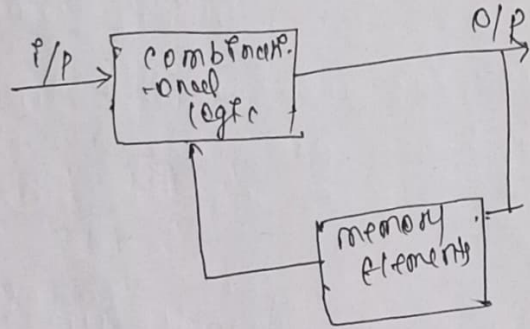 I/P
combinati.
-onal
logic
O/P
memory
elements